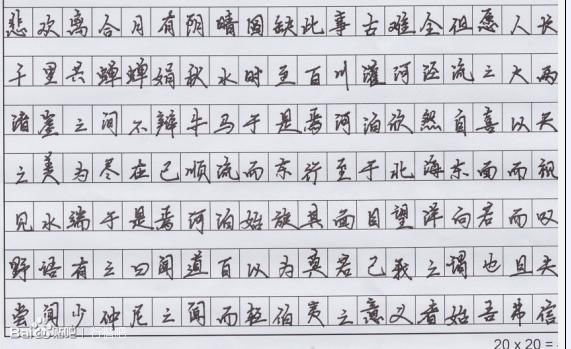 悲欢离合月有阴晴圆缺此事古难全但愿人长
千里共蝉蝉娟秋水时至百川灌河泾流之大两
渚崖之间不辩牛马于是焉河泊欣然自喜以天
之美为尽在己顺流而东行至于北海东面而视
见水端于是焉河泊始旋其面目望洋向若而叹
野语有之曰闻道百以为莫若己我之谓也且夫
尝闻少仲尼之闻而轻伯夷之意义者始吾弗信
Baidu贴吧
20 x 20 =